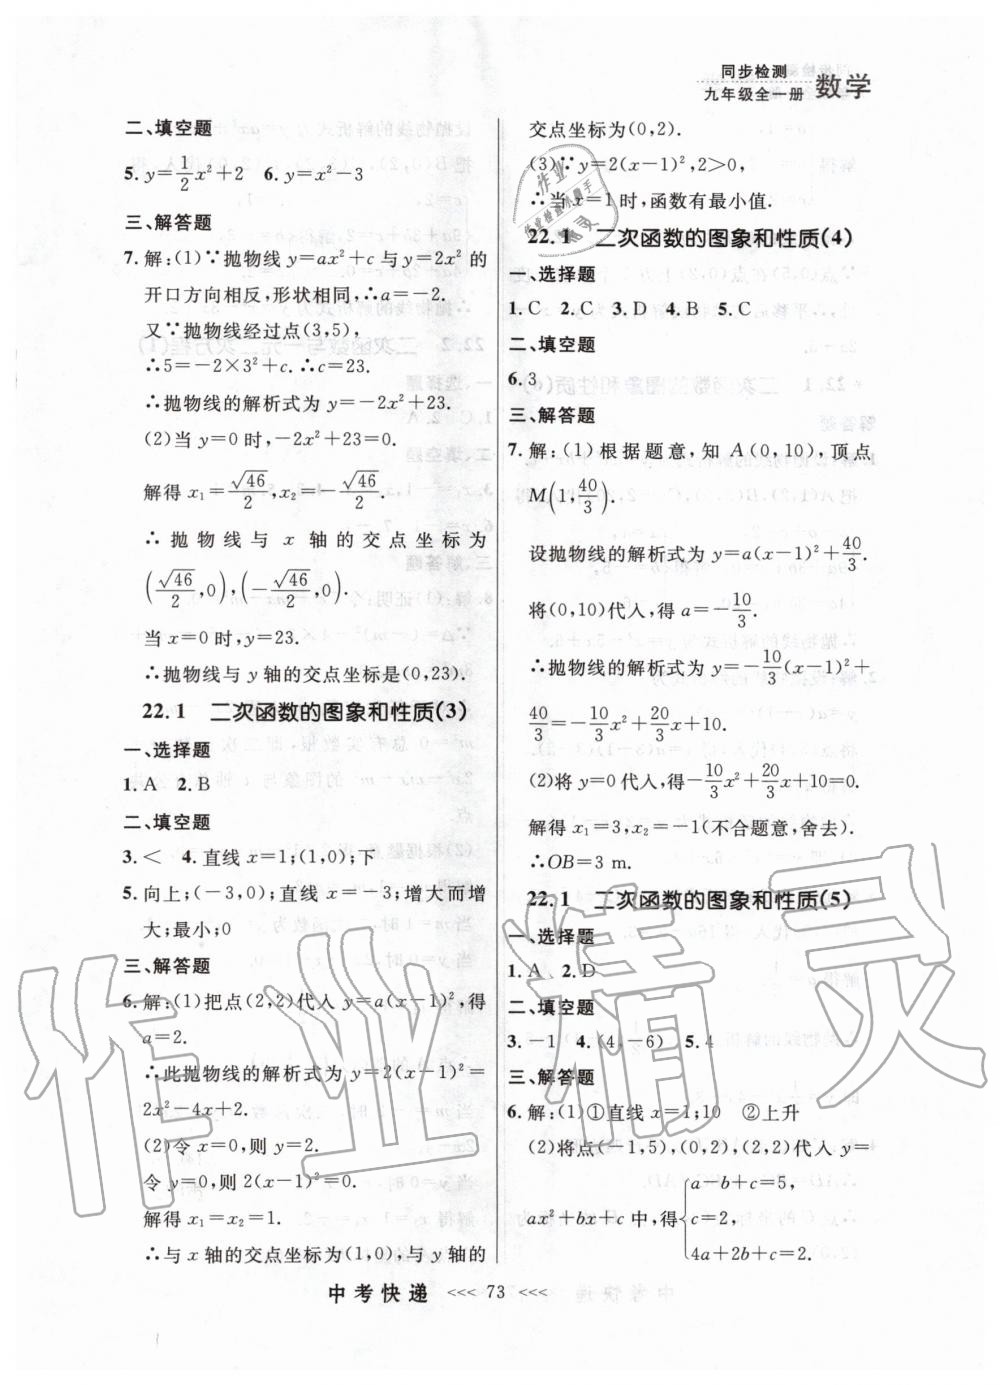 同步检测
九年级全一册 数学
二、填空题
5.y=1/2x²+2 6.y=x²-3
三、解答题
7.解:(1)∵抛物线 y=ax²+c 与 y=2x² 的
开口方向相反,形状相同,∴a=-2.
又∵抛物线经过点(3,5),
∴5=-2×3²+c.∴c=23.
∴抛物线的解析式为 y=-2x²+23.
(2)当 y=0 时,-2x²+23=0.
解得 x₁=√46/2,x₂=-√46/2.
∴抛物线与 x 轴的交点坐标为
(√46/2,0),(-√46/2,0).
当 x=0 时,y=23.
∴抛物线与 y 轴的交点坐标是(0,23).
22.1 二次函数的图象和性质(3)
一、选择题
1.A 2.B
二、填空题
3.< 4.直线 x=1;(1,0);下
5.向上;(-3,0);直线 x=-3;增大而增
大;最小;0
三、解答题
6.解:(1)把点(2,2)代入 y=a(x-1)²,得
a=2.
∴此抛物线的解析式为 y=2(x-1)²=
2x²-4x+2.
(2)令 x=0,则 y=2.
令 y=0,则 2(x-1)²=0.
解得 x₁=x₂=1.
∴与 x 轴的交点坐标为(1,0),与 y 轴的
交点坐标为(0,2).
(3)∵y=2(x-1)²,2>0,
∴当 x=1时,函数有最小值.
22.1 二次函数的图象和性质(4)
一、选择题
1.C 2.C 3.D 4.B 5.C
二、填空题
6.3
三、解答题
7.解:(1)根据题意,知 A(0,10),顶点
M(1,40/3).
设抛物线的解析式为 y=a(x-1)²+40/3.
将(0,10)代入,得 a=-10/3.
∴抛物线的解析式为 y=-10/3(x-1)²+
40/3=-10/3x²+20/3x+10.
(2)将 y=0代入,得-10/3x²+20/3x+10=0.
解得 x₁=3,x₂=-1(不合题意,舍去).
∴OB=3 m.
22.1 二次函数的图象和性质(5)
一、选择题
1.A 2.D
二、填空题
3.-1 4.(4,-6) 5.4
三、解答题
6.解:(1)①直线 x=1;10 ②上升
(2)将点(-1,5),(0,2),(2,2)代入 y=
ax²+bx+c 中,得{a-b+c=5,
c=2,
4a+2b+c=2.
中考快递 <<< 73 <<<
作业精灵